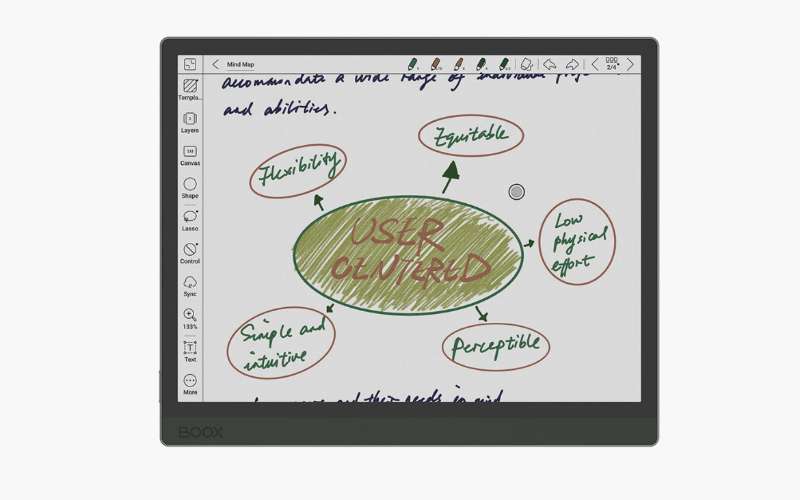 Mind Map
2/4
Templa...
Layers
Canvas
Shape
Lasso
Control
Sync
133%
Text
More
accommodate a wide range of individual
and abilities.
Equitable
Flexibility
USER
CENTERED
Low
physical
effort
Simple and
intuitive
Perceptible
and their needs in mind
BOOX